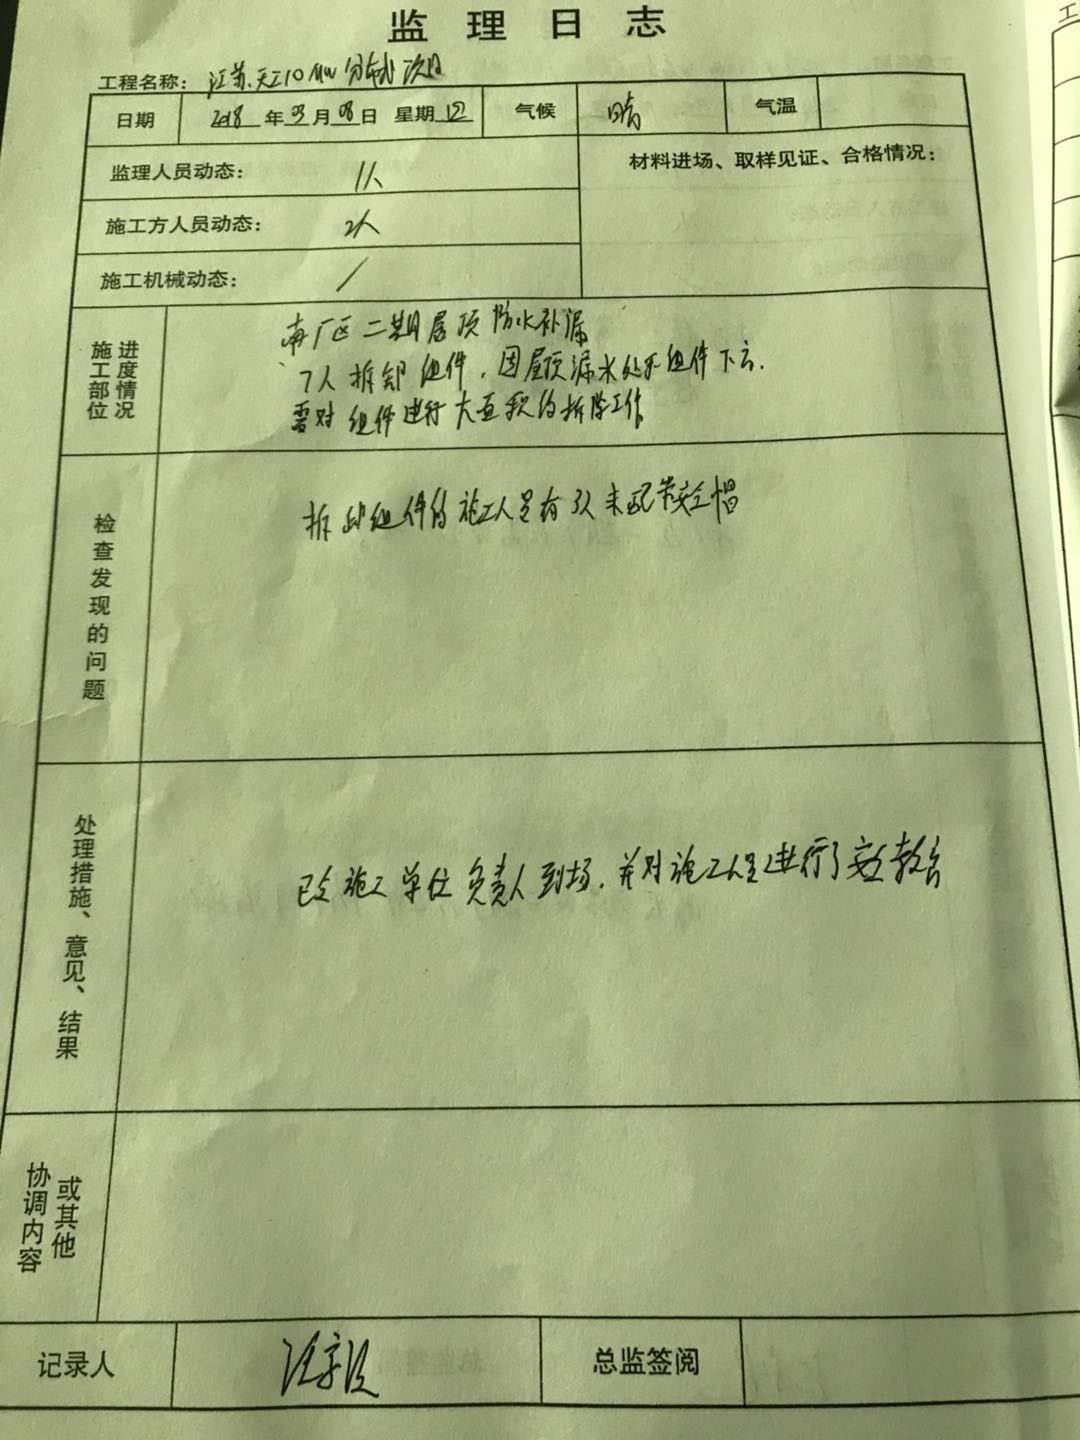 监理日志
工程名称：江苏天工10MW分布式项目
日期 2018年03月08日 星期四 气候 晴 气温
监理人员动态： 1人
材料进场、取样见证、合格情况：
施工方人员动态： 2人
施工机械动态： /
施工部位进度情况
南厂区二期屋顶防水补漏
7人拆卸组件，因屋顶漏水处于组件下方，
需对组件进行大面积的拆除工作
检查发现的问题
拆卸组件的施工人员有3人未配带安全帽
处理措施、意见、结果
已令施工单位负责人到场，并对施工人员进行了安全教育
协调内容或其他
记录人
总监签阅
工